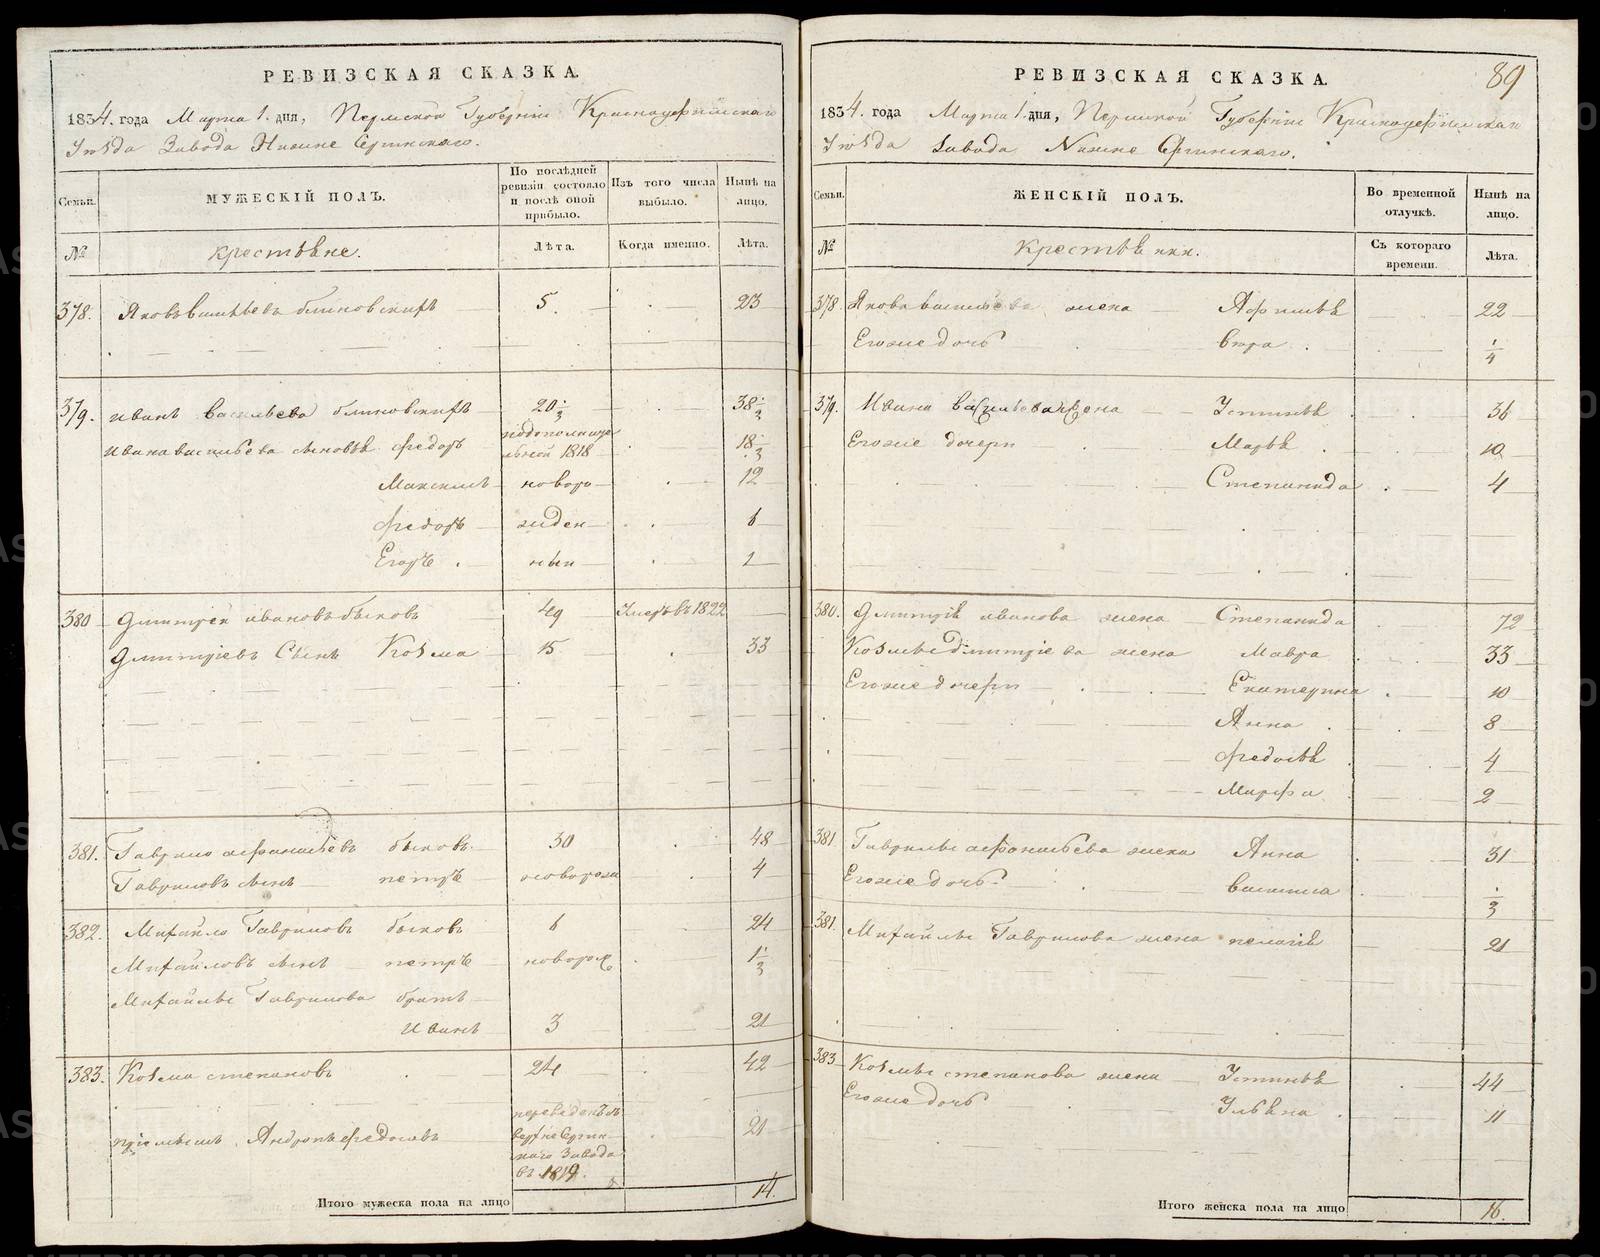 РЕВИЗСКАЯ СКАЗКА.
1834. года Марта 1. дня, Пермской Губерніи Красноуфимскаго
Уѣзда Завода Нижне Сергинскаго.
Семьи.
МУЖЕСКІЙ ПОЛЪ.
По послѣдней
ревизіи состояло
и послѣ оной
прибыло.
Изъ того числа
выбыло.
Нынѣ на
лицо.
№
крестьяне.
Лѣта.
Когда именно.
Лѣта.
378. Яковъ Васильевъ блиновскихъ 5. 23
379. Иванъ Васильевъ блиновскихъ 20 1/3 38 1/3
Ивана васильева сыновья федоръ подополните
льной 1818 18 1/3
Максимъ новоро 12
федоръ жден 6
Егоръ ныи 1
380 Дмитрей ивановъ быковъ 49 Умеръ въ 1822
Дмитріевъ Сынъ Козма 15 33
381. Гаврило афонасьевъ быковъ 30 48
Гавриловъ сынъ петръ новорож 4
382. Михайло Гавриловъ быковъ 6 24
Михайловъ сынъ петръ новорож 1 1/3
Михайлы Гаврилова братъ
Иванъ 3 21
383. Козма степановъ 24 42
пріемышъ Андронъ федосѣевъ
переведенъ изъ
верхне Сергин
скаго Завода
въ 1819. 21
Итого мужеска пола на лицо 14.
РЕВИЗСКАЯ СКАЗКА. 89
1834. года Марта 1. дня, Пермской Губерніи Красноуфимскаго
Уѣзда Завода Нижне Сергинскаго.
Семьи.
ЖЕНСКІЙ ПОЛЪ.
Во временной
отлучкѣ.
Нынѣ на
лицо.
№
крестьянки.
Съ котораго
времени.
Лѣта.
378. Якова васильева жена Афимья 22
Егоже дочь вера 1/4
379. Ивана васильева жена Устинья 36
Егоже дочери Марья 10
Степанида 4
380. Дмитрія иванова жена Степанида 72
Козмы Дмитріева жена Мавра 33
Егоже дочери Екатерина 10
Анна 8
федосья 4
Марфа 2
381 Гаврилы афонасьева жена Анна 31
Егоже дочь василиса 1/3
381. Михайлы Гаврилова жена пелагія 21
383 Козмы степанова жена Устинья 44
Егоже дочь Ульяна 11
Итого женска пола на лицо 16.